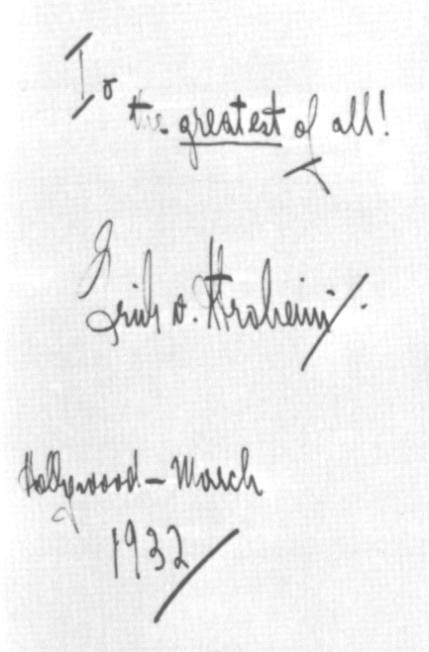 To
the greatest of all!
Erich v. Stroheim
Hollywood - March
1932